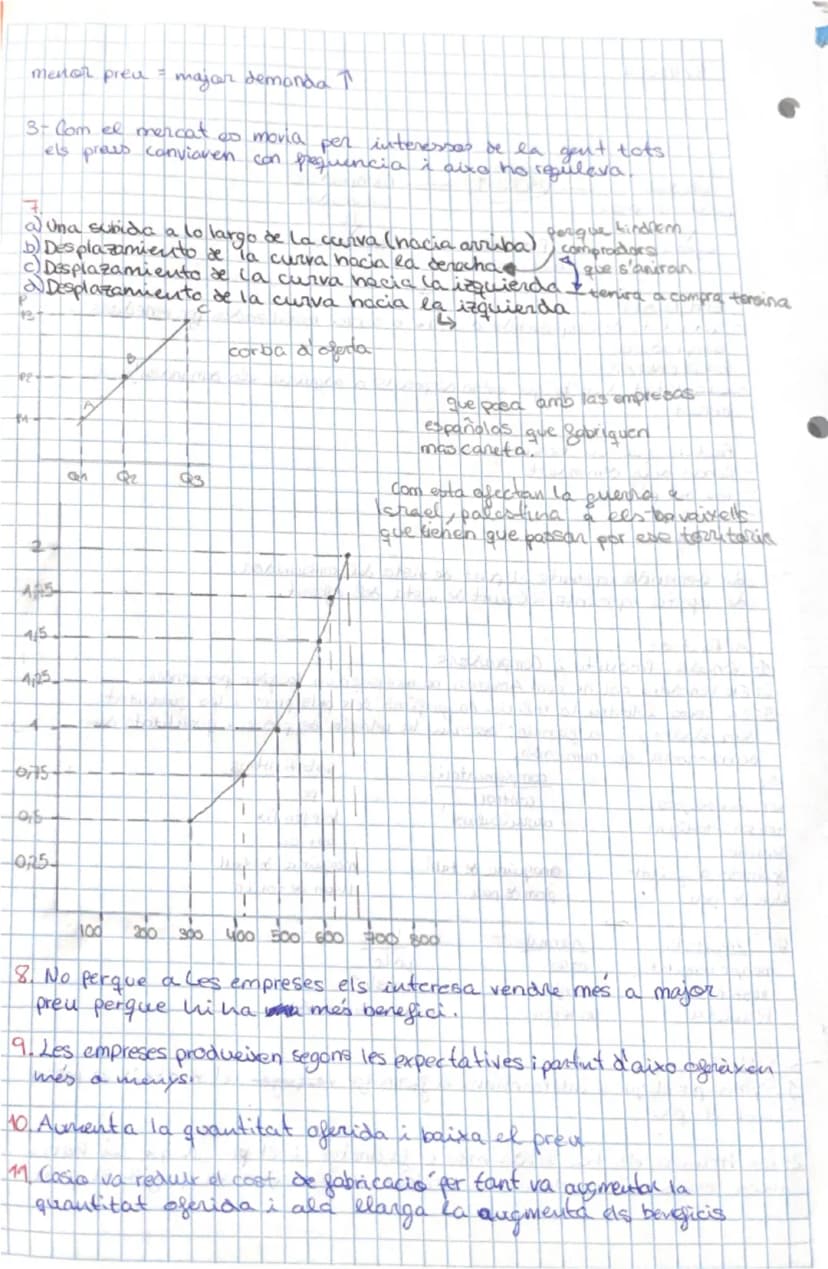 menor preu = major demanda ↑
3- Com el mercat es movia per interessos de la gent tots
els preus canviaven con frequencia i aixo ho regulava.
7.
a) Una subida a lo largo de la curva (hacia arriba)
b) Desplazamiento de la curva hacia la derecha
c) Desplazamiento de la curva hacia la izquierda
d) Desplazamiento de la curva hacia la izquierda
perque tindrem
compradors
que s'aniran
tenira a compra
P
P3
P2
P1
A
B
C
Q1 Q2 Q3
corba d'oferta
que pasa amb las empresas
españolas que fabriquen
mascareta.
Com esta afectan la guerra a
Israel, palestina a els vaixells
que tienen que passar por ese territorio
2
1,75
1,5
1,25
1
0,75
0,5
0,25
100 200 300 400 500 600 700 800
8. No perque a les empreses els interesa vendre més a major
preu perque hi ha més benefici.
9. Les empreses produeixen segons les expectatives i partint d'aixo ofereixen
més o menys.
10. Aumenta la quantitat oferida i baixa el preu
11. Casio va reduir el cost de fabricació per tant va augmentar la
quantitat oferida i a la llarga va augmenta els beneficis